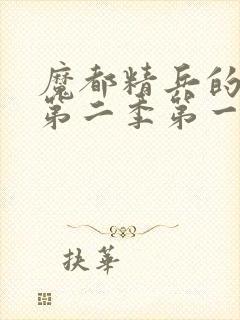 魔都精兵的
第二季第一
扶華